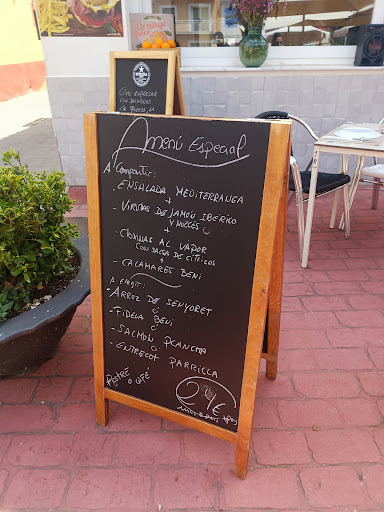 Orange
Menú Especial
A Compartir:
- ENSALADA MEDITERRANEA
+
- VIRUTAS DE JAMÓN IBERICO
Y NUECES
+
- CLOCHINAS AL VAPOR
CON SALSA DE CITRICOS
+
- CALAMARES BENI
A elegir:
- ARROZ DE SENYORET
ó
- FIDEUA BENI
ó
- SALMÓN PLANCHA
ó
- ENTRECOT PARRILLA
POSTRE O CAFÉ
29€